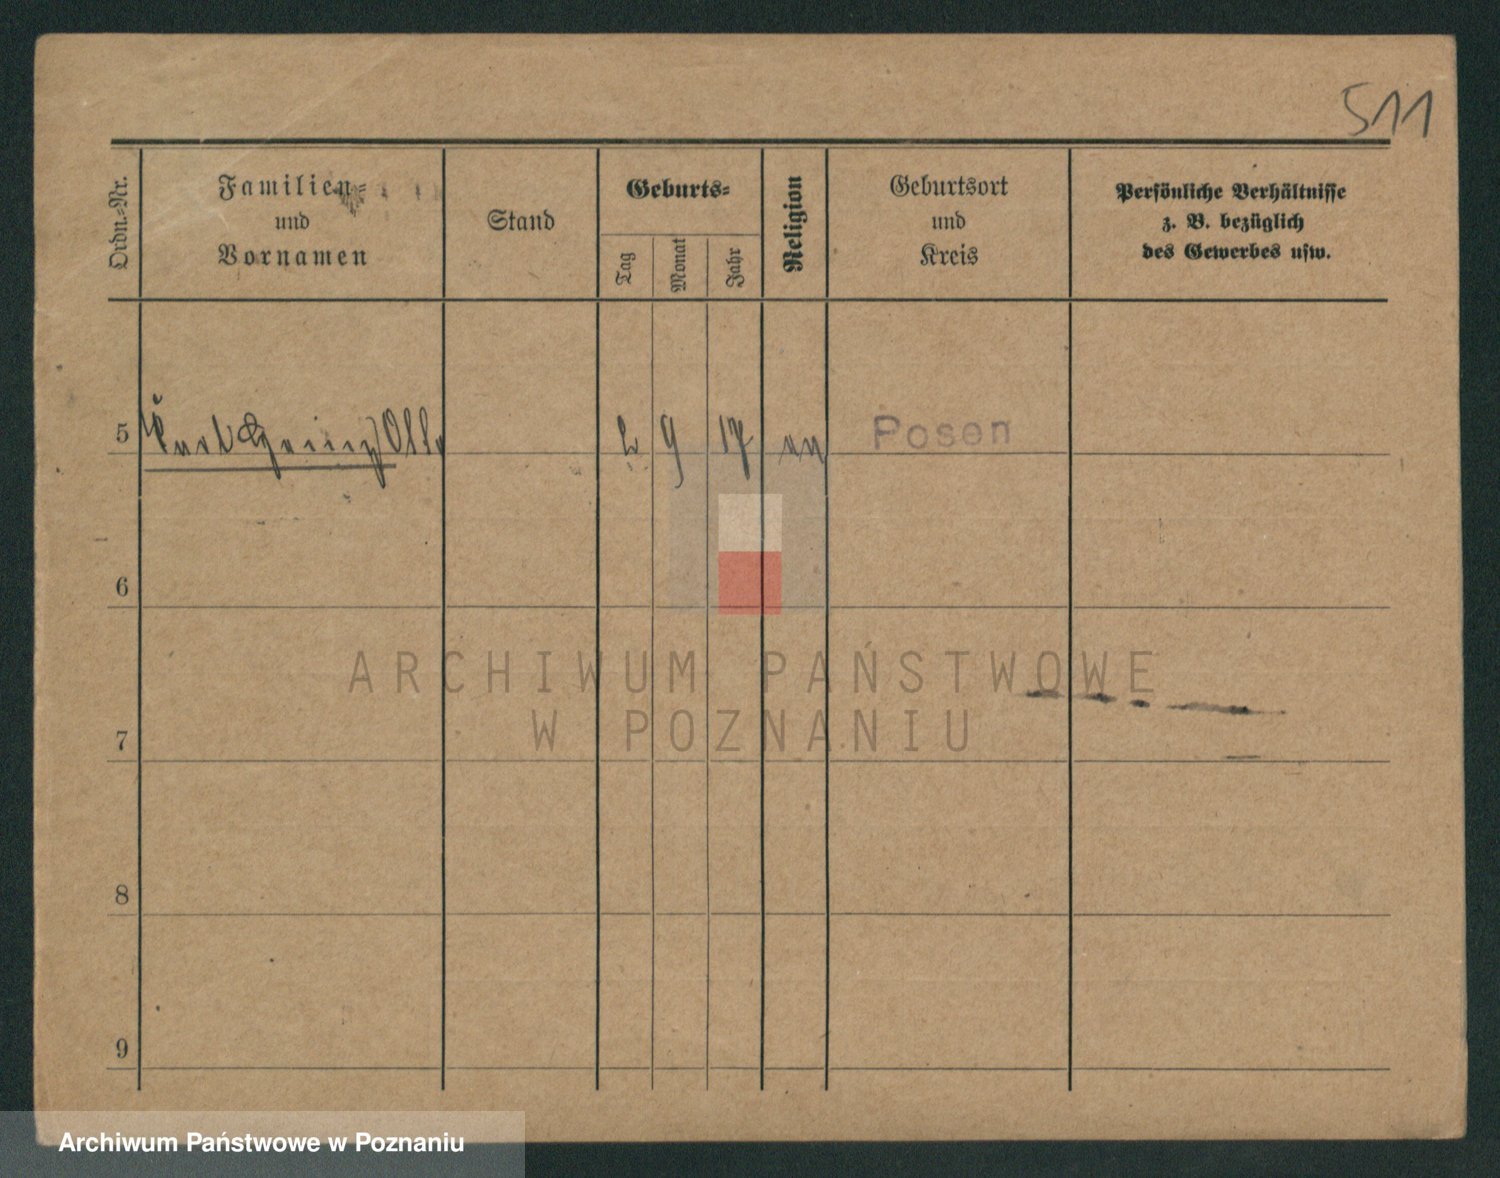 511
Ordn.-Nr.
Familien-
und
Vornamen
Stand
Geburts-
Tag
Monat
Jahr
Religion
Geburtsort
und
Kreis
Persönliche Verhältnisse
z. B. bezüglich
des Gewerbes usw.
5 Kurt Heinz Otto 2 9 17 Posen
6
7
8
9
ARCHIWUM PAŃSTWOWE
W POZNANIU
Archiwum Państwowe w Poznaniu